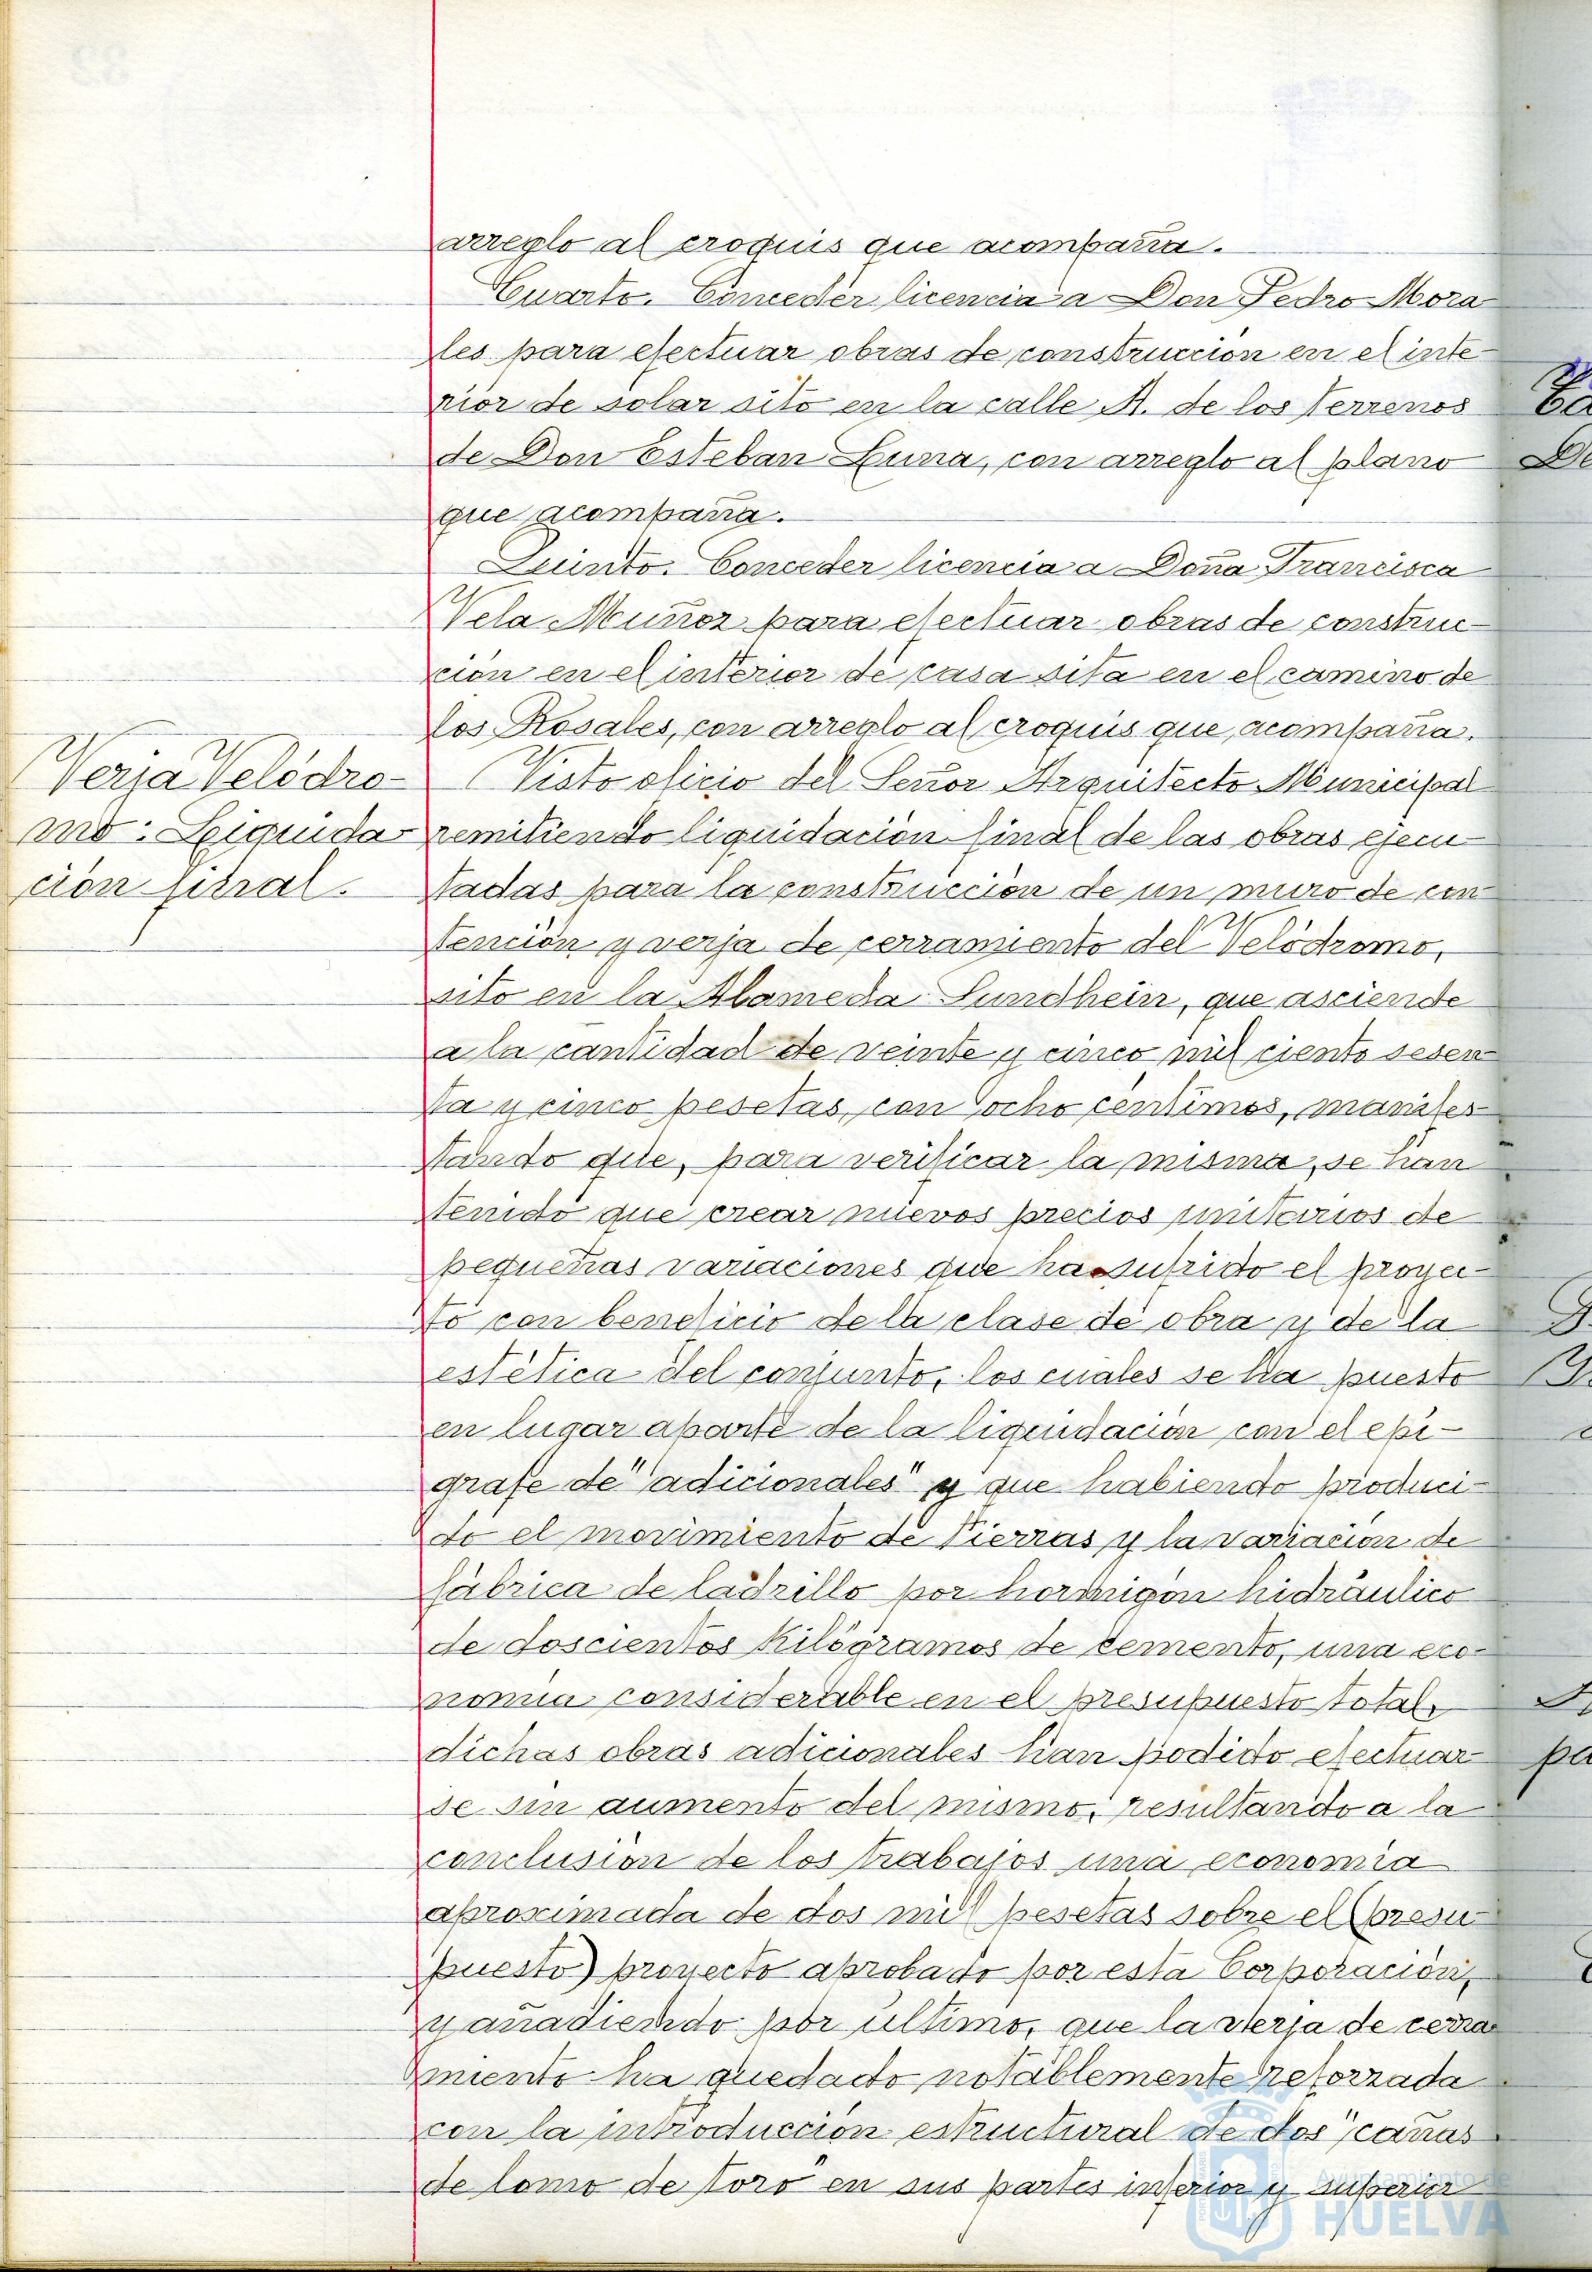 arreglo al croquis que acompaña.
Cuarto. Conceder licencia a Don Pedro Mora
les para efectuar obras de construcción en el inte-
rior de solar sito en la calle A. de los Terrenos
de Don Esteban Luna, con arreglo al plano
que acompaña.
Quinto. Conceder licencia a Doña Francisca
Vela Muñoz para efectuar obras de construc-
ción en el interior de casa sita en el camino de
los Rosales, con arreglo al croquis que acompaña.
Verja Velódro-
mo: Liquida
ción final.
Visto oficio del Señor Arquitecto Municipal
remitiendo liquidación final de las obras ejecu-
tadas para la construcción de un muro de con-
tención y verja de cerramiento del Velódromo,
sito en la Alameda Sundhein, que asciende
a la cantidad de veinte y cinco mil ciento sesen-
ta y cinco pesetas, con ocho céntimos, manifes-
tando que, para verificar la misma, se han
tenido que crear nuevos precios unitarios de
pequeñas variaciones que ha sufrido el proyec-
to con beneficio de la clase de obra y de la
estética del conjunto, los cuales se ha puesto
en lugar aparte de la liquidación con el epí-
grafe de "adicionales" y que habiendo produci-
do el movimiento de tierras y la variación de
fábrica de ladrillo por hormigón hidráulico
de doscientos kilógramos de cemento, una eco-
nomía considerable en el presupuesto total,
dichas obras adicionales han podido efectuar-
se sin aumento del mismo, resultando a la
conclusión de los trabajos una economía
aproximada de dos mil pesetas sobre el (presu-
puesto) proyecto aprobado por esta Corporación,
y añadiendo por último, que la verja de cerra
miento ha quedado notablemente reforzada
con la introducción estructural de dos "cañas
de lomo de toro" en sus partes inferior y superior
Ayuntamiento de
HUELVA